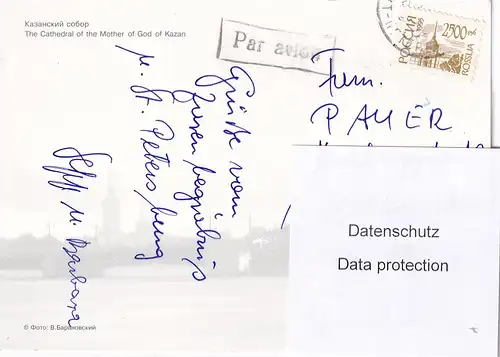 Казанский собор
The Cathedral of the Mother of God of Kazan
Par avion
РОССИЯ
1995
2500
ROSSIJA
Grüße vom
Zarenbegräbnis
u. St. Petersburg
Sepp u. Barbara
Fam.
PAUER
Datenschutz
Data protection
© Фото: В.Барановский